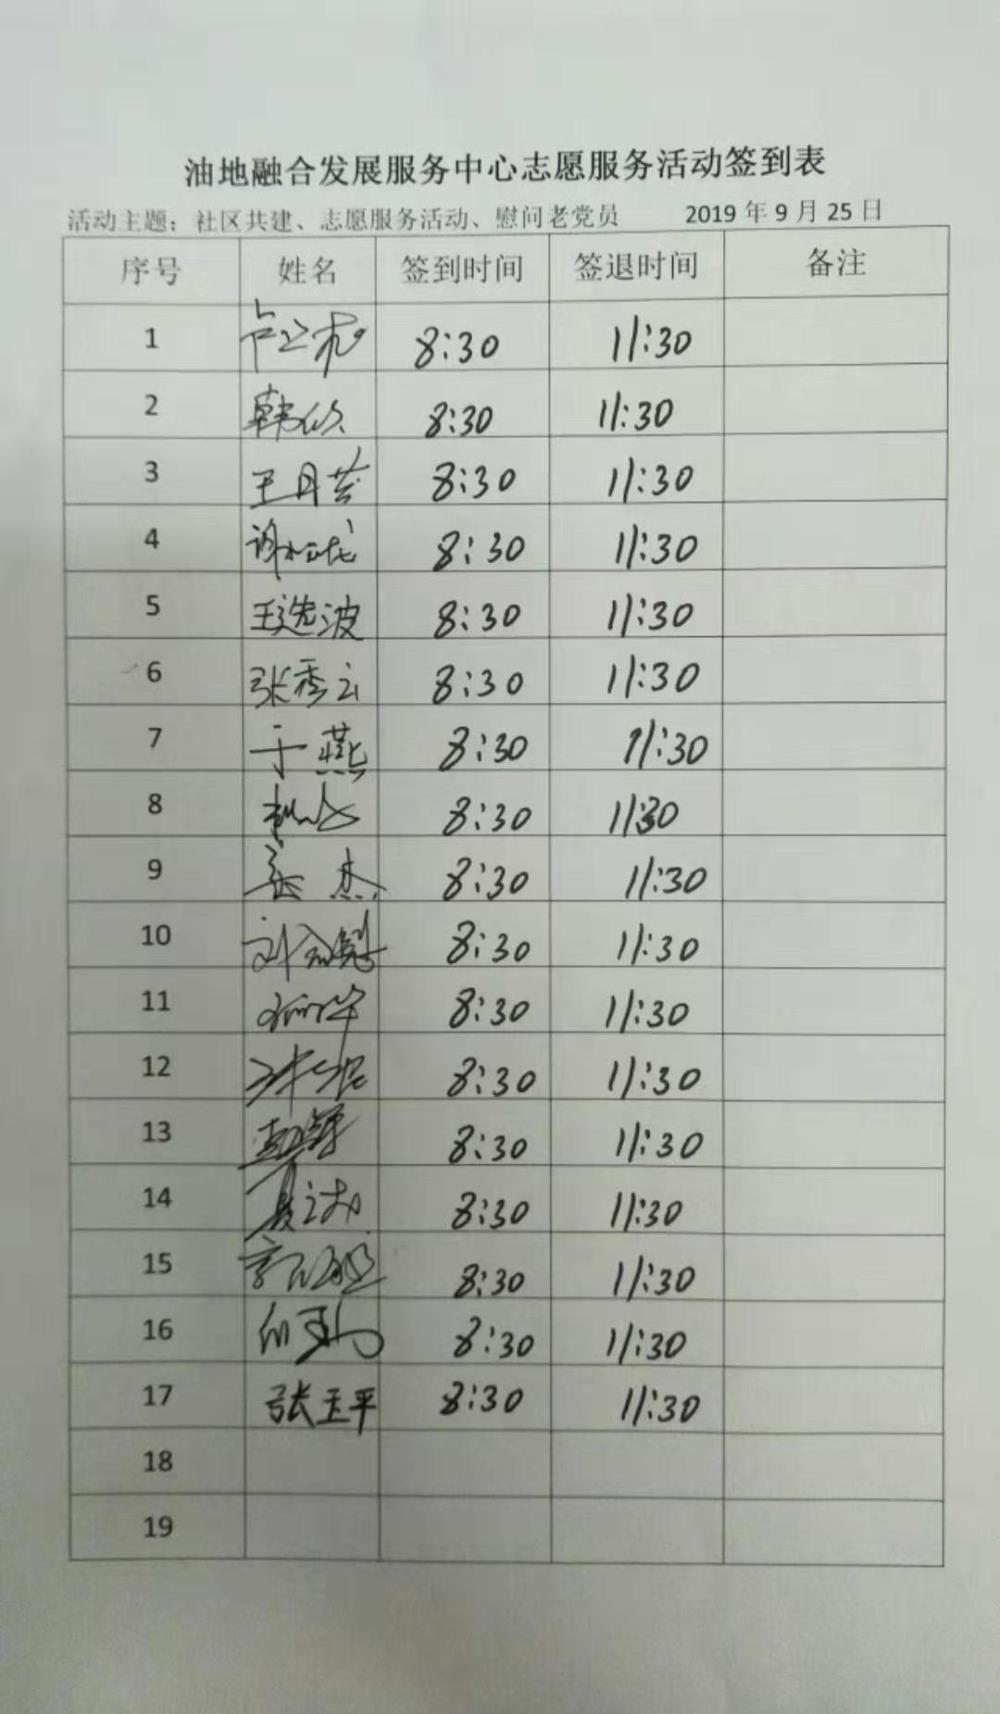 油地融合发展服务中心志愿服务活动签到表
活动主题：社区共建、志愿服务活动、慰问老党员 2019年9月25日
序号 姓名 签到时间 签退时间 备注
1 8:30 11:30
2 韩欣 8:30 11:30
3 王月芸 8:30 11:30
4 8:30 11:30
5 王选波 8:30 11:30
6 张秀云 8:30 11:30
7 于燕 8:30 11:30
8 8:30 11:30
9 姜杰 8:30 11:30
10 8:30 11:30
11 8:30 11:30
12 8:30 11:30
13 8:30 11:30
14 8:30 11:30
15 8:30 11:30
16 8:30 11:30
17 张玉平 8:30 11:30
18
19